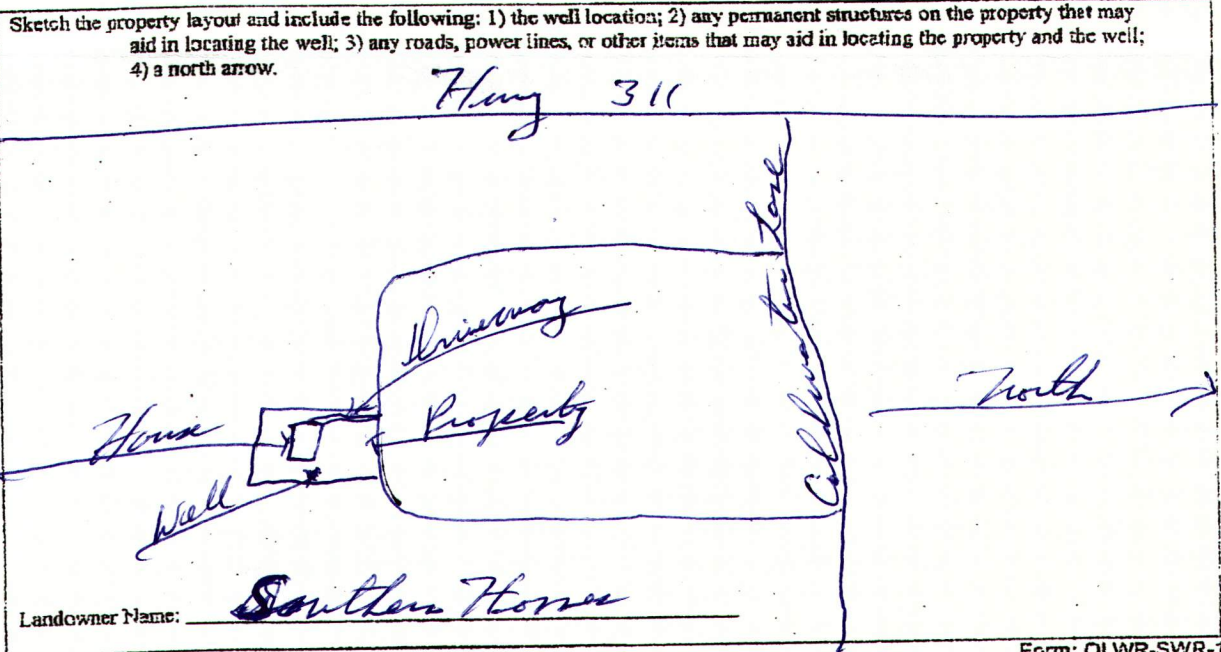 Sketch the property layout and include the following: 1) the well location; 2) any permanent structures on the property that may
aid in locating the well; 3) any roads, power lines, or other items that may aid in locating the property and the well;
4) a north arrow.
Hwy 311
Lane
Driveway
Property
House
North
Well
Landowner Name: Southern Homes
Form: OLWR-SWR-1